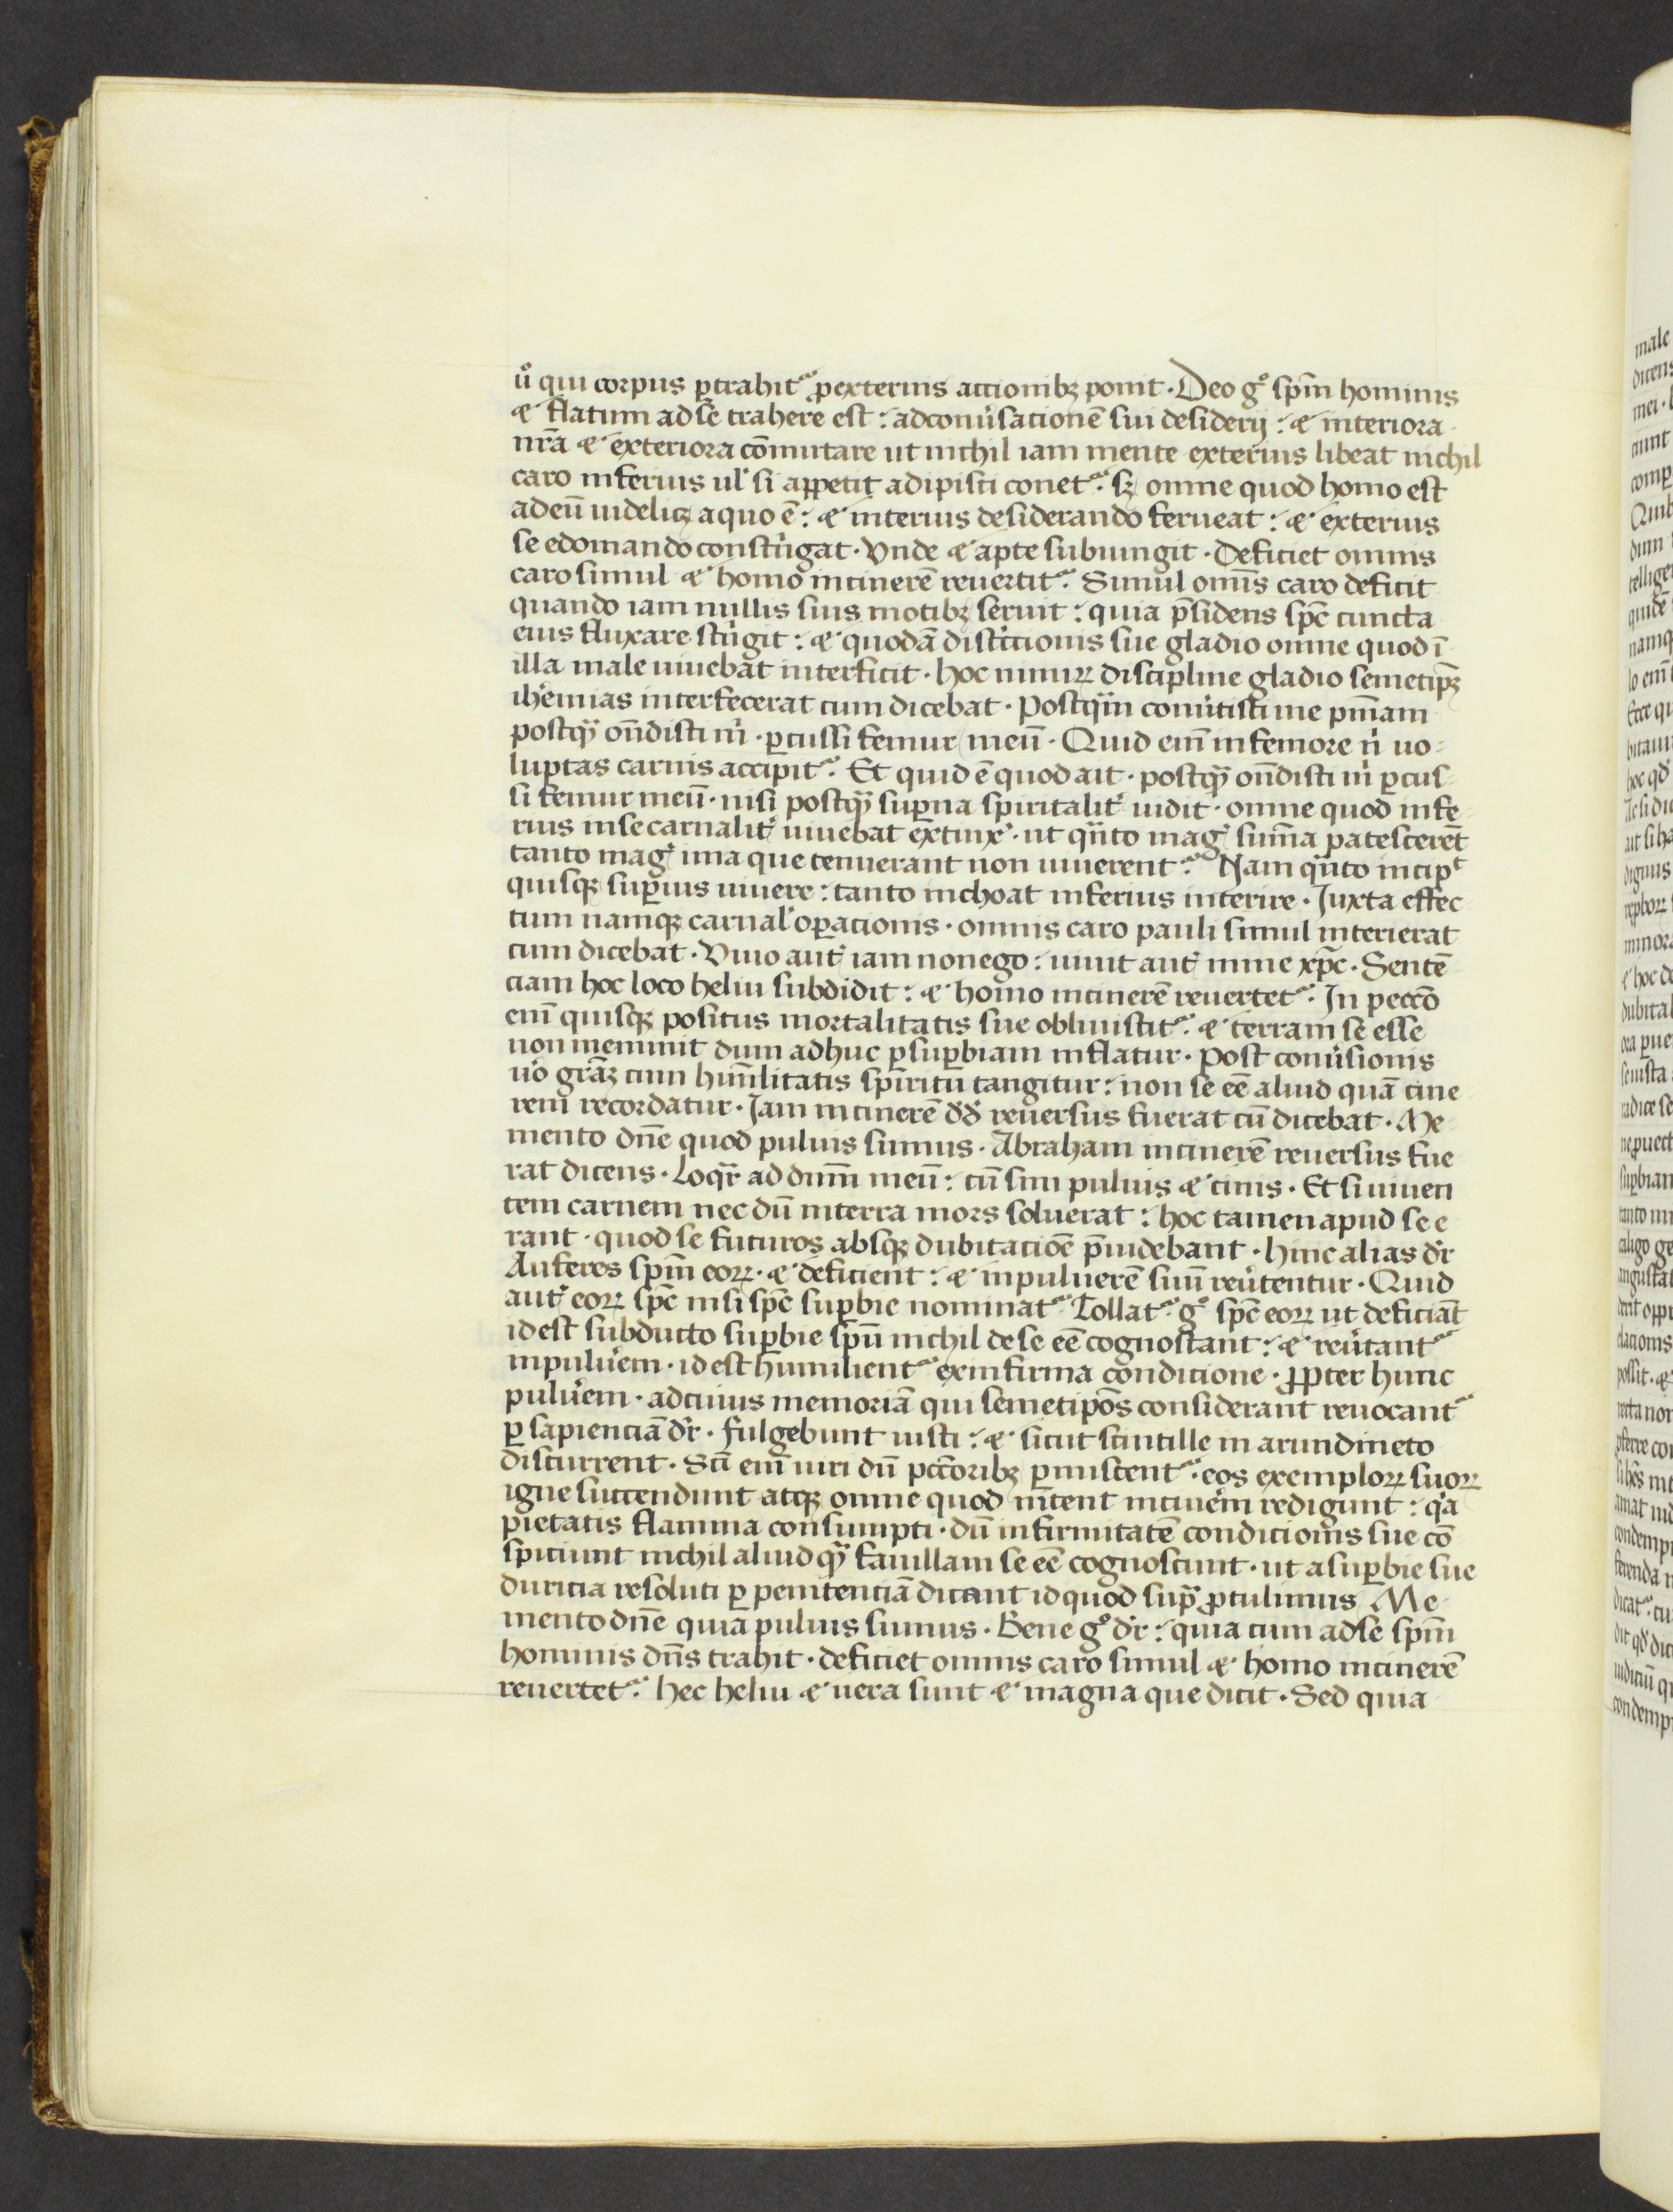 ū̊ qui corpus ꝑtrahitᷣ ꝓ exterius accionibꝫ ponit · Deo gͦ sp̄m hominis
⁊ flatum ad se trahere est : ad conuͥsacionē sui desiderij : ⁊ interiora
nr̄a ⁊ exteriora cōmutare ut nichil iam mente exterius libeat nichil
caro inferius ul̓ si appetit adipisci conetᷣ · sꝫ omne quod homo est
ad eū uidelicꝫ a quo ē : ⁊ interius desiderando ferueat : ⁊ exterius
se edomando constͥngat · Vnde ⁊ apte subiungit · Deficiet omnis
caro simul ⁊ homo in cinerē reuertitᷣ · Simul om̄s caro deficit
quando iam nullis suis motibꝫ seruit : quia p̄sidens sp̄c cuncta
eius fluxa restͥngit : ⁊ quodā distͥctionis sue gladio omne quod ī
illa male uiuebat interficit · hoc nimiꝝ discipline gladio semetip̄ꝫ
ih̓emias interfecerat cum dicebat · Postqᷓm conuͥtisti me pn̄iam
postqᷓ on̄disti m̓ · ꝑcussi femur meū · Quid em̄ in femore n̓ uo-
luptas carnis accipitᷣ · Et quid ē quod ait · postqᷓ on̄disti m̓ ꝑcus-
si femur meū · nisi postqᷓ suꝑna spiritalit̓ uidit · omne quod infe-
rius in se carnalit̓ uiuebat extinx̓ · ut qᷓnto mag̓ sum̄a patescerēt
tanto mag̓ ima que tenuerant non uiuerentᷣ · Nam qᷓnto incipᵗ
quisqꝫ suꝑius uiuere : tanto inchoat inferius interire · Juxta effec
tum namqꝫ carnal̓ oꝑacionis · omnis caro pauli simul interierat
cum dicebat · Viuo aut̓ iam non ego : uiuit aut̓ in me xp̄c · Sentē
ciam hoc loco heliu subdidit : ⁊ homo in cinerē reuertetᷣ · In pecc̄o
em̄ quisqꝫ positus mortalitatis sue obliuiscitᷣ · ⁊ terram se esse
non meminit dum adhuc ꝑ suꝑbiam inflatur · Post conuͥsionis
uͦo grāꝫ cum hūilitatis spiritu tangitur : non se eē aliud quā cine
rem recordatur · Jam in cinerē d̓d̓ reuersus fuerat cū dicebat · Me-
mento dn̄e quod puluis sumus · Abraham in cinerē reuersus fue
rat dicens · Loqᷓr ad dnm̄ meū : cū sim puluis ⁊ cinis · Et si uiuen
tem carnem nec dū in terra mors soluerat : hoc tamen apud se e
rant · quod se futuros absqꝫ dubitacioē p̄uidebant · hinc alias dr̄
Auferes sp̄m eoꝝ · ⁊ deficient : ⁊ in puluerē suū reuͥtentur · Quid
aut̓ eoꝝ sp̄c nisi sp̄c suꝑbie nominatᷣ Tollatᷣ gͦ sp̄c eoꝝ ut deficiāt
id est subducto suꝑbie spū nichil de se eē cognoscant : ⁊ reuͥtantᷣ
in puluͥem · id est humilientᷣ ex infirma condicione · ꝓpter hunc
puluͥem · ad cuius memoriā qui semetip̄os considerant reuocantᷣ
ꝑ sapienciā dr̄ · fulgebunt iusti : ⁊ sicut scintille in arundineto
discurrent · Sc̄i em̄ uiri dū pcc̄oribꝫ ꝑmiscentᷣ · eos exemploꝝ suoꝝ
igne succendunt atqꝫ omne quod nͥtent in cinͥem redigunt : qᷓa
pietatis flamma consumpti · dū infirmitatē condicionis sue cō
spiciunt nichil aliud qᷓ fauillam se eē cognoscunt · ut a suꝑbie sue
duricia resoluti ꝑ penitenciā dicant id quod supᷓ ꝓtulimus Me-
mento dn̄e quia puluis sumus · Bene gͦ dr̄ : quia cum ad se sp̄m
hominis dn̄s trahit · deficiet omnis caro simul ⁊ homo in cinerē
reuertetᷣ · hec heliu ⁊ uera sunt ⁊ magna que dicit · Sed quia